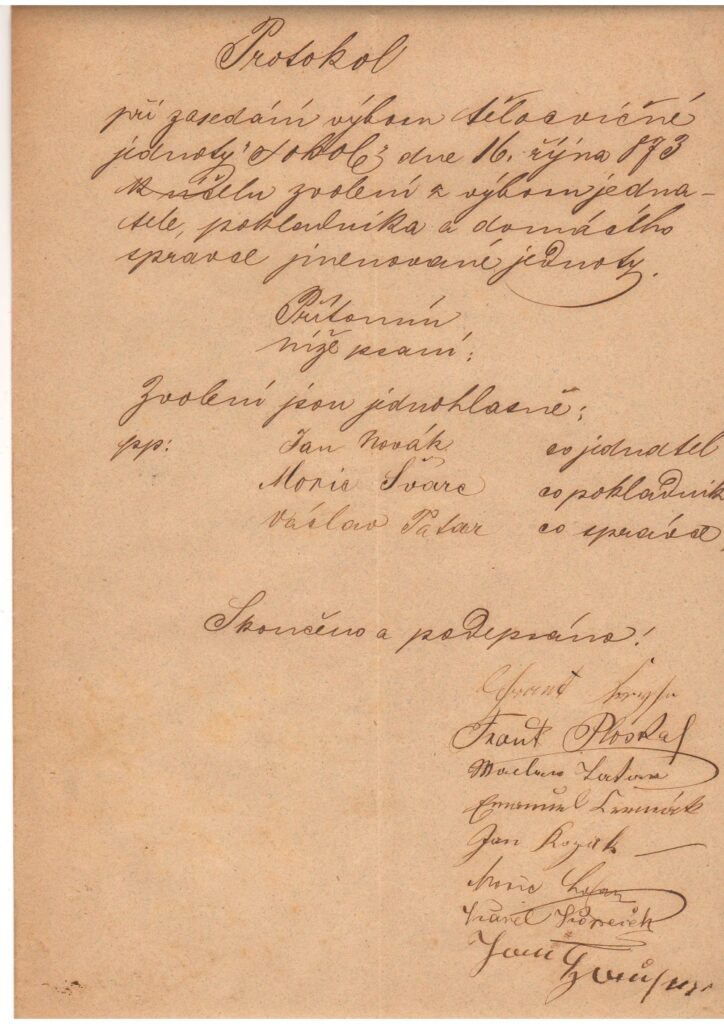 Protokol
při zasedání výboru tělocvičné
jednoty "Sokol" dne 16. října 873
k účelu zvolení z výboru jedna-
tele, pokladníka a domácího
správce jmenované jednoty.
Přítomni
níže psaní:
Zvoleni jsou jednohlasně:
pp: Jan Novák co jednatel
Moric Švarc co pokladník
Václav Tatar co správce,
Skončeno a podepsáno!
Frant
Frant Ploskal
Tatar
Emanuel Čermák
Jan Kozák
Moric
Karel